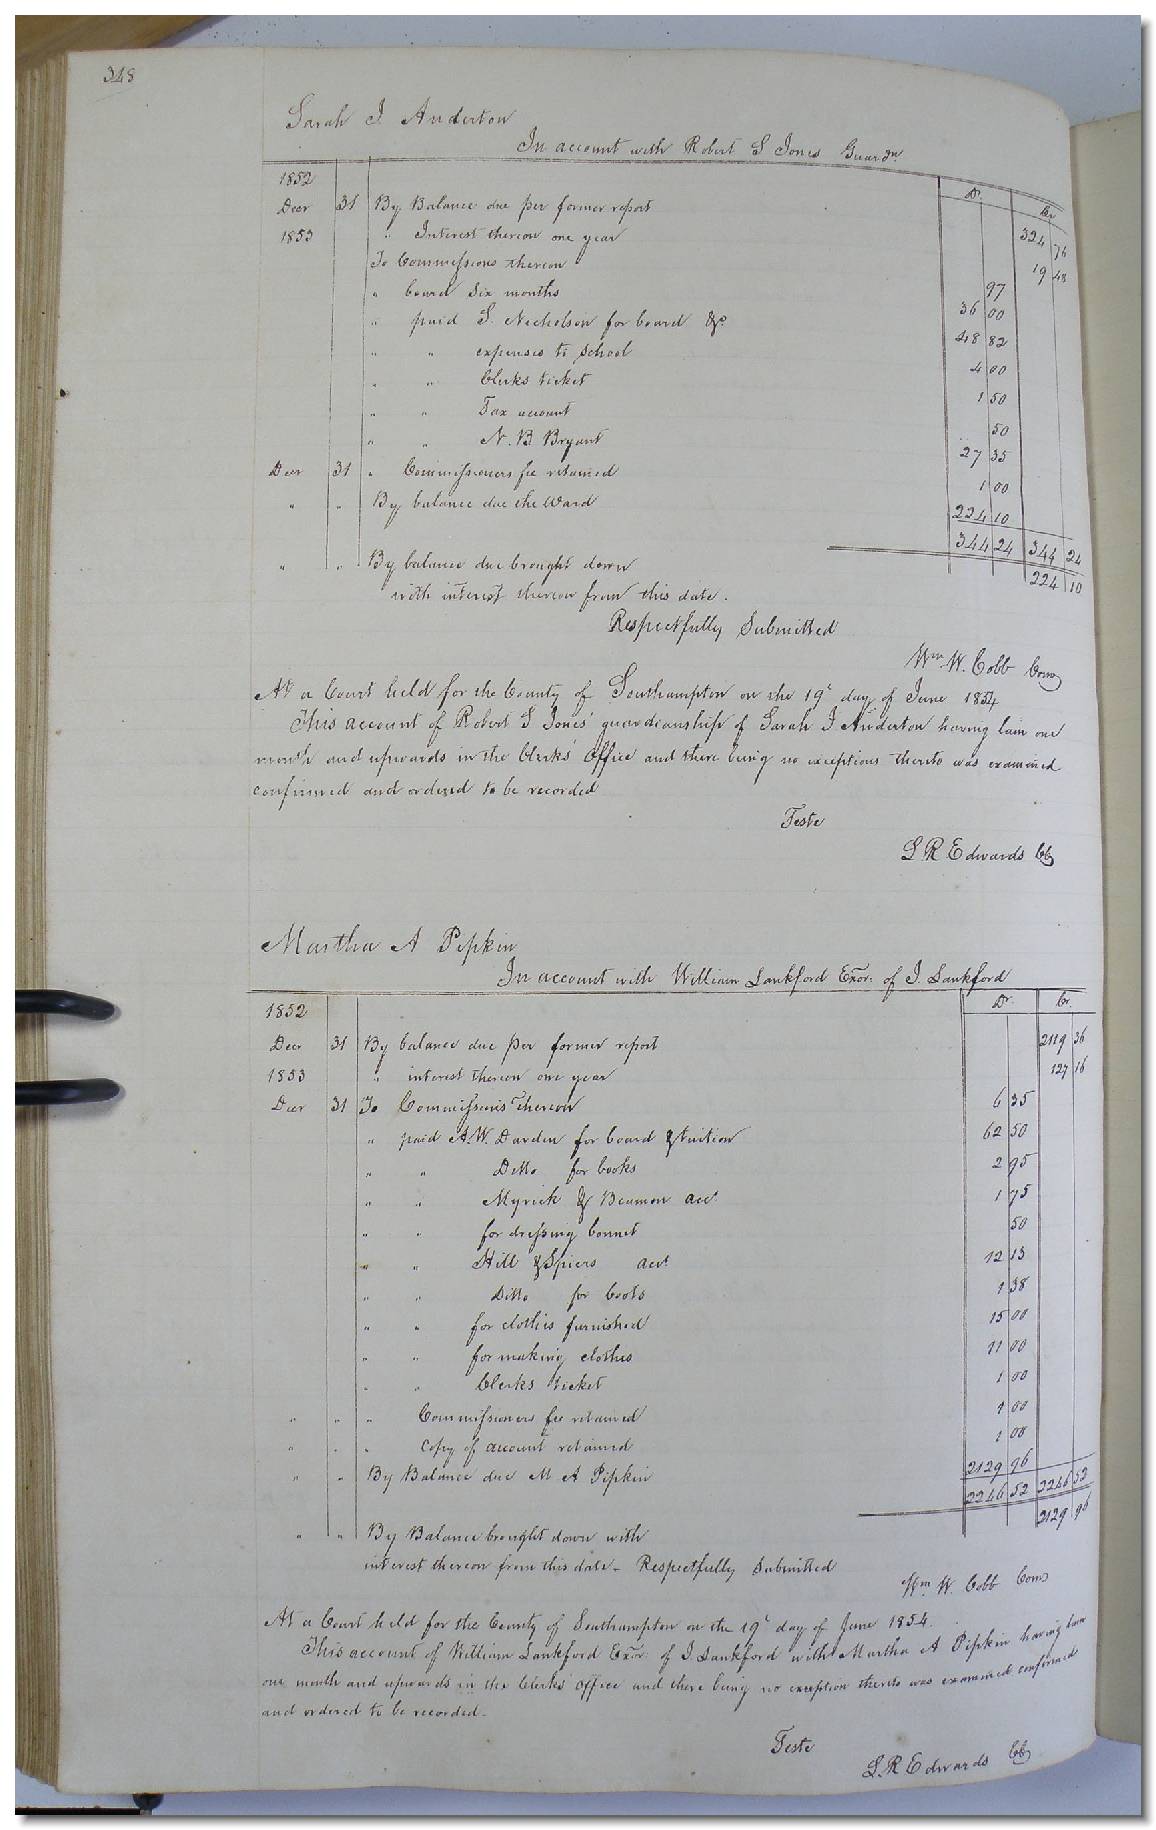 348
Sarah J. Anderton
In account with Robert S Jones Guardn
Dr. Cr
1852
Decr 31 By Balance due per former report 324 76
1853 " Interest thereon one year 19 48
To Commissions thereon 97
" board six months 36 00
" paid S. Nicholson for board &c 48 82
" " expenses to school 4 00
" " Clerks ticket 1 50
" " Tax account 50
" " N. B Bryant 27 35
Decr 31 " Commissioners fee retained 1 00
" " By balance due the Ward 224 10
344 24 344 24
" " By balance due brought down 224 10
with interest thereon from this date.
Respectfully Submitted
Wm W. Cobb Com
At a Court held for the County of Southampton on the 19t day of June 1854
This account of Robert S Jones' guardianship of Sarah J Anderton having lain one
month and upwards in the Clerks' Office and there being no exceptions thereto was examined
confirmed and ordered to be recorded
Teste
L R Edwards CC
Martha A Pipkin
In account with William Lankford Exor. of J. Lankford
Dr. Cr.
1852
Decr 31 By balance due per former report 2119 36
1853 " interest thereon one year 127 16
Decr 31 To Commissions thereon 6 35
" paid A.W. Darden for board & tuition 62 50
" " Ditto for books 2 95
" " Myrick & Beamon acct 1 75
" " for dressing bonnet 50
" " Hill & Spiers acct 12 13
" " Ditto for boots 1 38
" " for clothes furnished 15 00
" " for making clothes 11 00
" " Clerks ticket 1 00
" " " Commissioners fee retained 1 00
" " " Copy of account retained 1 00
" " By Balance due M A Pipkin 2129 96
2246 52 2246 52
2129 96
" " By Balance brought down with
interest thereon from this date. Respectfully Submitted
Wm W. Cobb Com
At a Court held for the County of Southampton on the 19t day of June 1854.
This account of William Lankford Exor. of J Lankford with Martha A Pipkin having lain
one month and upwards in the Clerks' office and there being no exception thereto was examined confirmed
and ordered to be recorded.
Teste
L. R Edwards CC